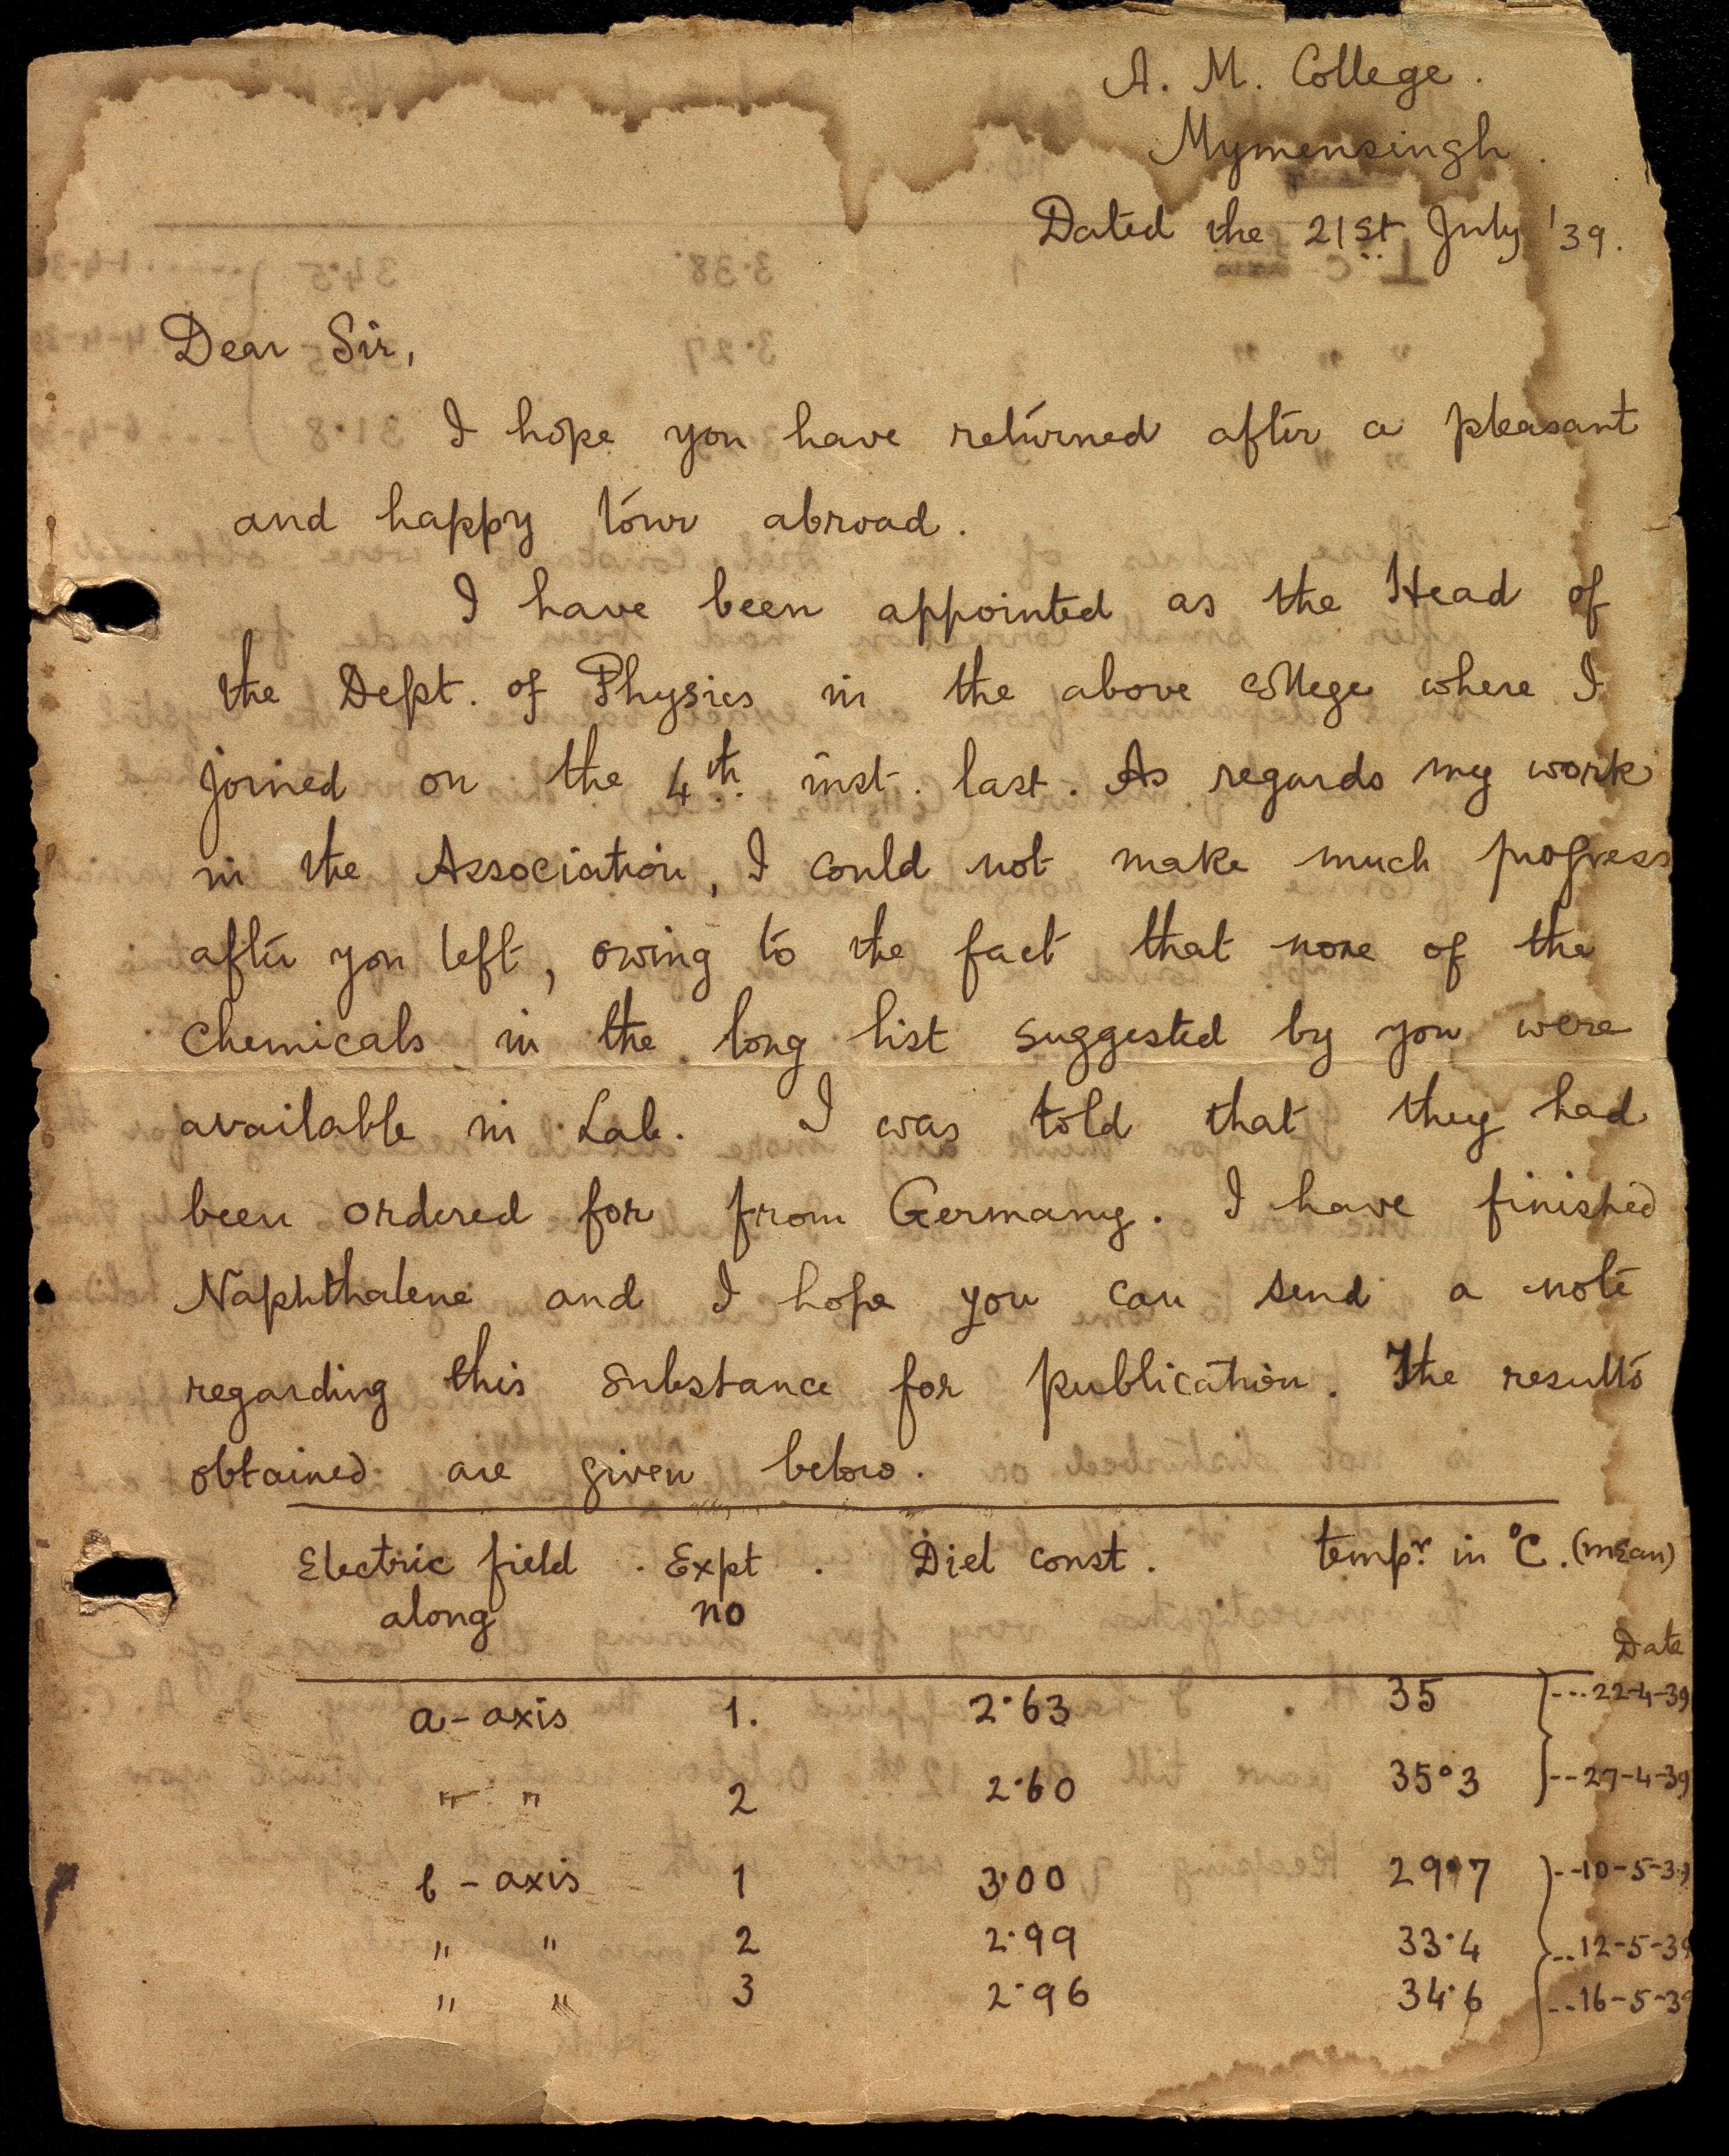 A. M. College.
Mymensingh.
Dated the 21st July '39.
Dear Sir,
I hope you have returned after a pleasant
and happy tour abroad.
I have been appointed as the Head of
the Dept. of Physics in the above college where I
joined on the 4th. inst. last. As regards my work
in the Association, I could not make much progress
after you left, owing to the fact that none of the
chemicals in the long list suggested by you were
available in Lab. I was told that they had
been ordered for from Germany. I have finished
Naphthalene and I hope you can send a note
regarding this substance for publication. The results
obtained are given below.
Electric field along Expt no. Diel const. tempr. in °C. (mean) Date
a-axis 1. 2·63 35 ---22-4-39
" " 2 2·60 35°3 --27-4-39
b-axis 1 3·00 29·7 --10-5-39
" " 2 2·99 33·4 --12-5-39
" " 3 2·96 34·6 --16-5-39